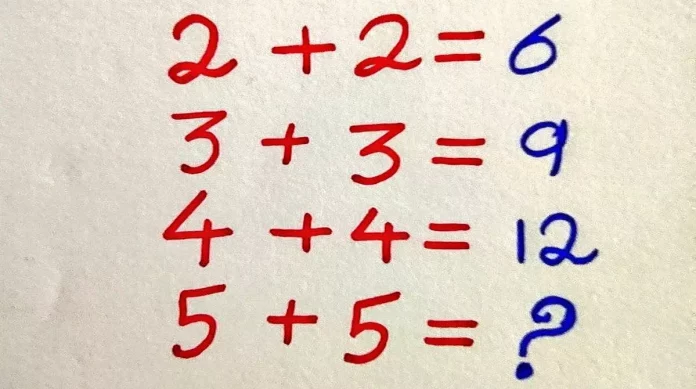 2 + 2 = 6
3 + 3 = 9
4 + 4 = 12
5 + 5 = ?